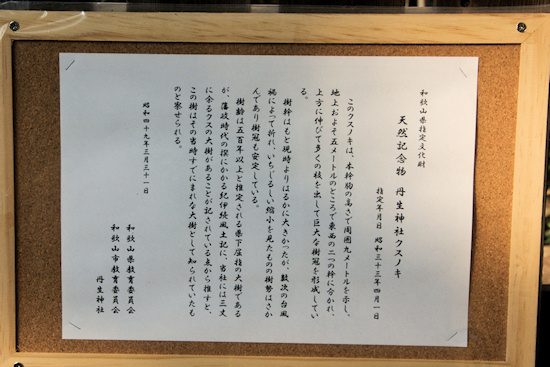 和歌山県指定文化財
天然記念物 丹生神社クスノキ
指定年月日 昭和三十三年四月一日
このクスノキは、本幹胸の高さで周囲九メートルを示し、
地上およそ五メートルのところで東西の二つの幹に分かれ、
上方に伸びて多くの枝を出して巨大な樹冠を形成してい
る。
樹幹はもと現時よりはるかに大きかったが、数次の台風
禍によって折れ、いちじるしい縮小を見たものの樹勢はさか
んであり樹冠も安定している。
樹齢は五百年以上と推定される県下屈指の大樹である
が、藩政時代の撰にかかる紀伊続風土記に、当社には三丈
に余るクスの大樹があることが記されている点から推すと、
この樹はその当時すでにまれな大樹として知られていたも
のと察せられる。
昭和四十九年三月三十一日
和歌山県教育委員会
和歌山市教育委員会
丹生神社